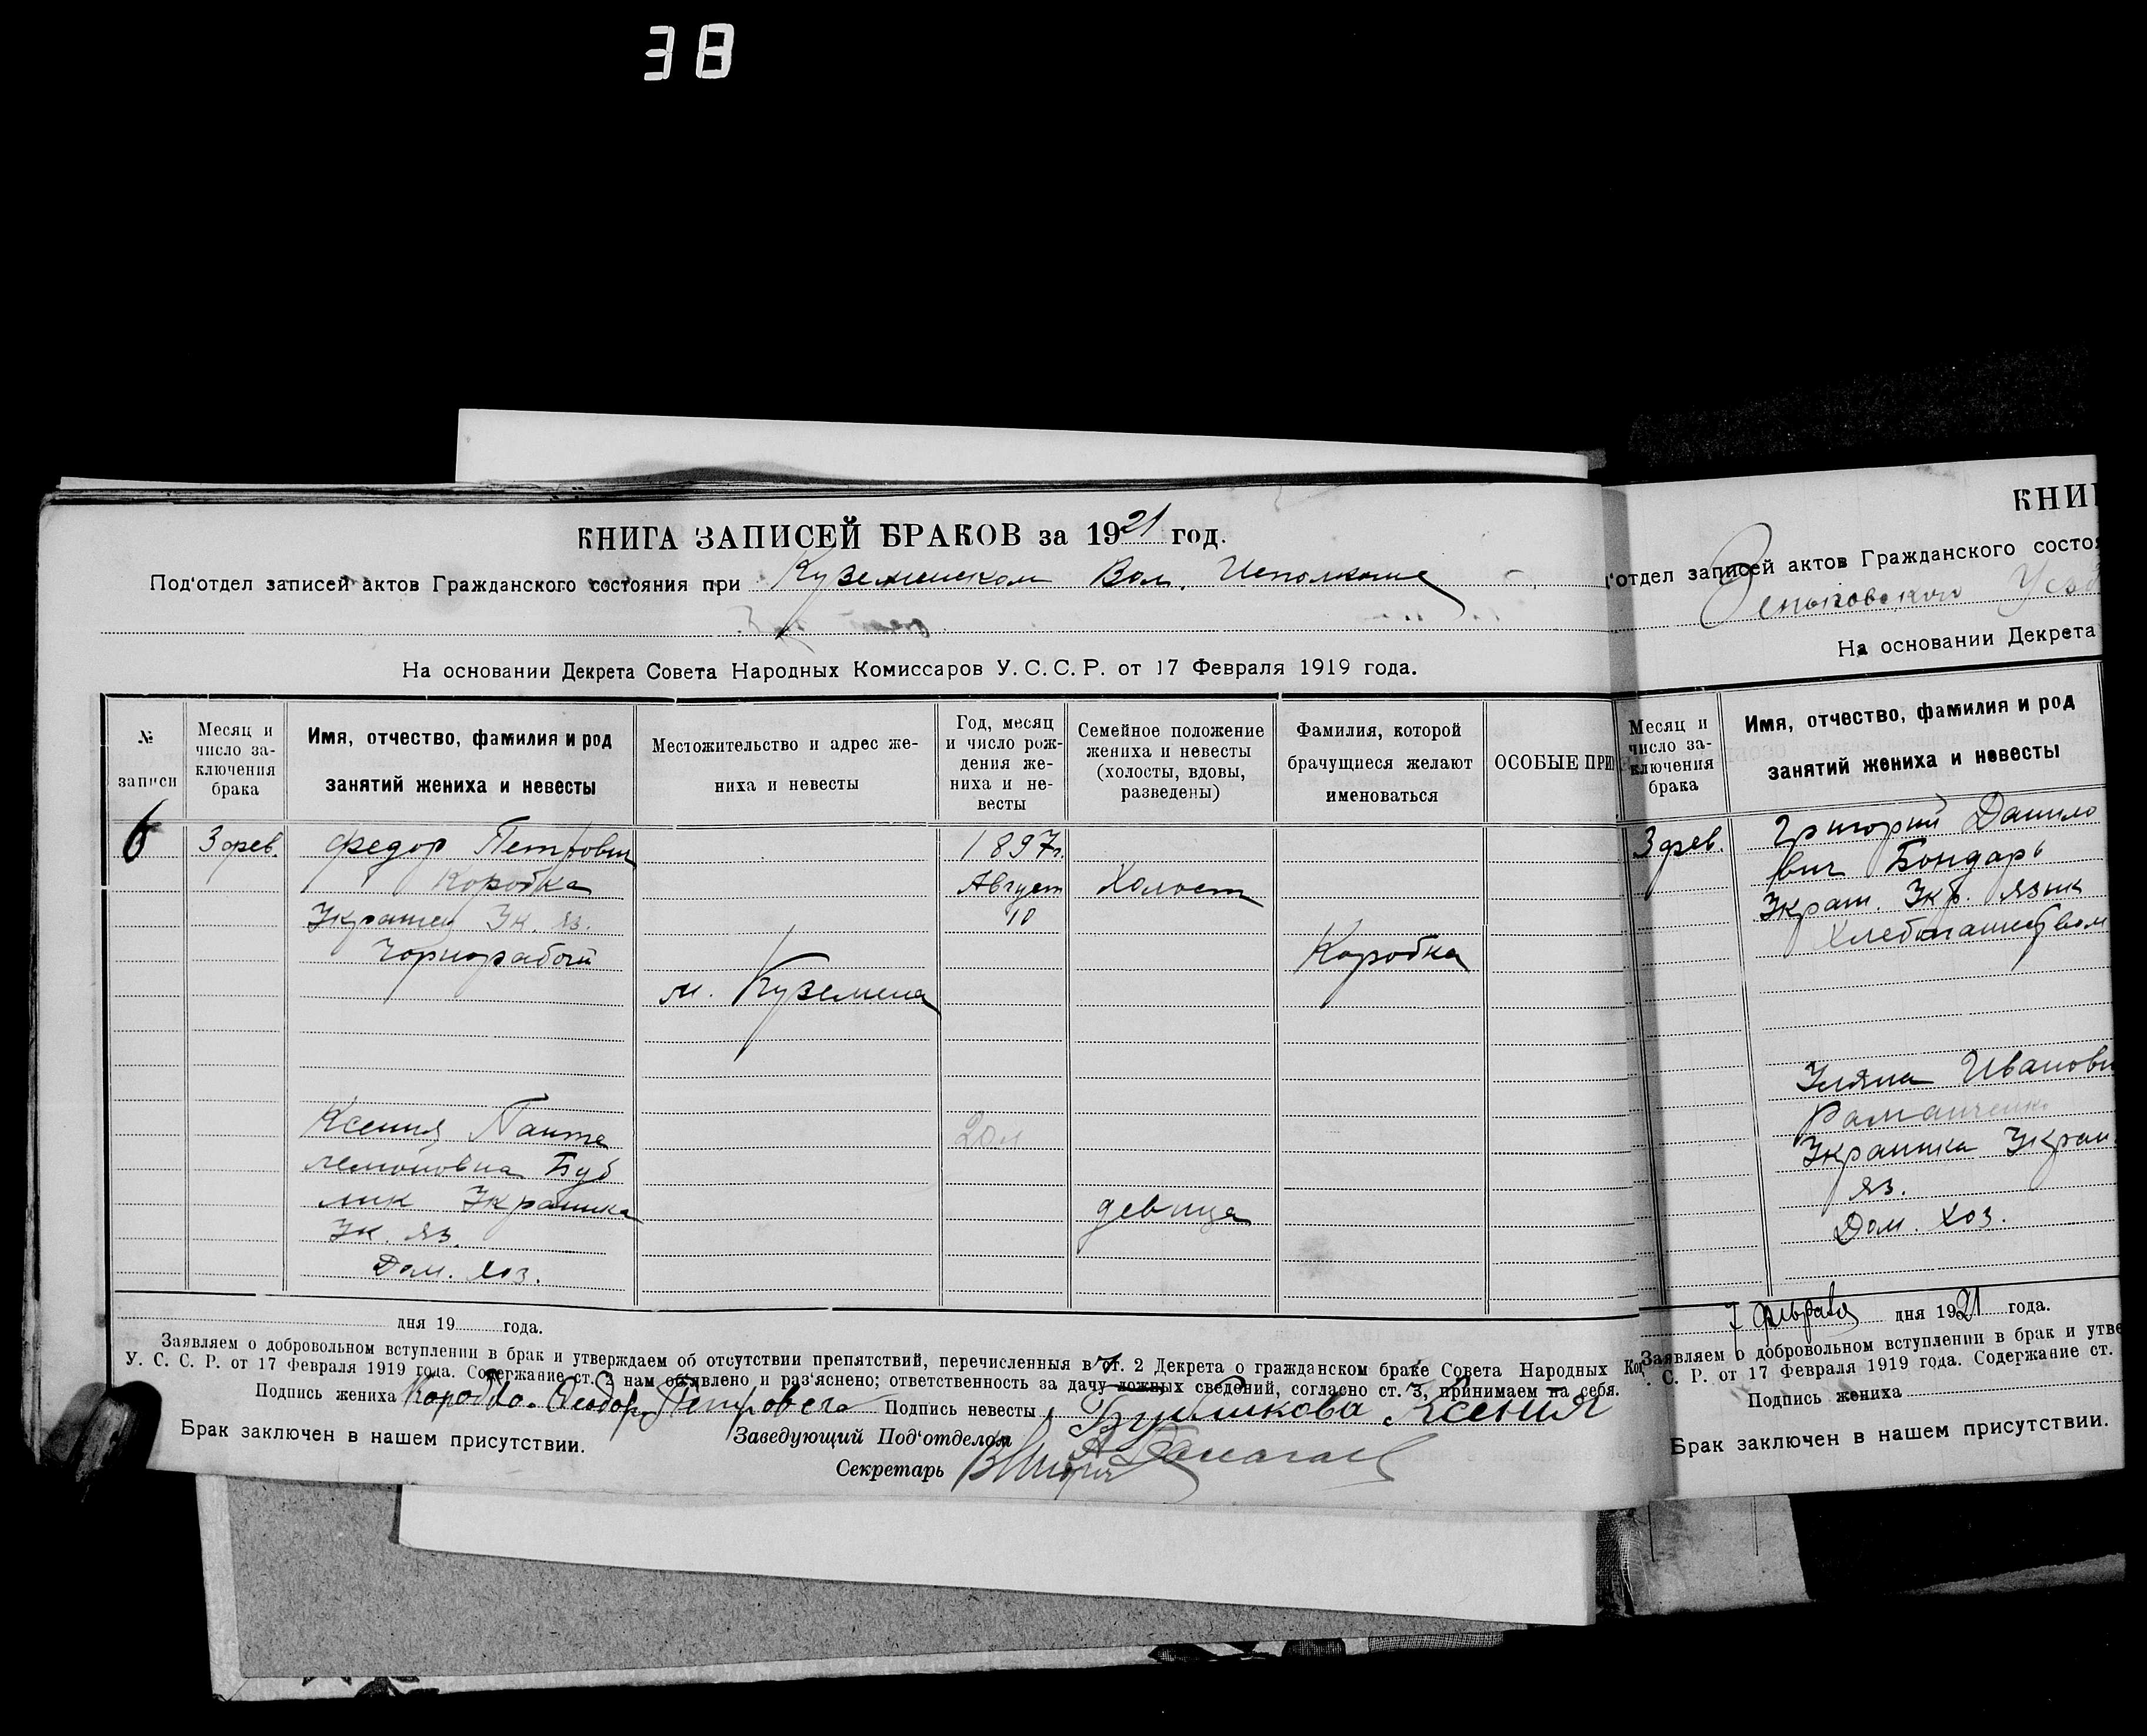 38
КНИГА ЗАПИСЕЙ БРАКОВ за 1921 год.
Под'отдел записей актов Гражданского состояния при Куземинском Вол. Исполкоме
На основании Декрета Совета Народных Комиссаров У. С. С. Р. от 17 Февраля 1919 года.
№ записи
Месяц и число за-
ключения
брака
Имя, отчество, фамилия и род
занятий жениха и невесты
Местожительство и адрес же-
ниха и невесты
Год, месяц
и число рож-
дения же-
ниха и не-
весты
Семейное положение
жениха и невесты
(холосты, вдовы,
разведены)
Фамилия, которой
брачущиеся желают
именоваться
ОСОБЫЕ ПРИ
6
3 фев.
Федор Петрович
Коробка
Украинец Ук. яз.
Чорнорабочй
м. Куземена
1897г.
Август
10
Холост
Коробка
Ксения Панте
лемоновна Буб
лик Украинка
Ук. яз.
Дом. хоз.
20л
девица
дня 19 года.
Заявляем о добровольном вступлении в брак и утверждаем об отсутствии препятствий, перечисленныя в ст. 2 Декрета о гражданском браке Совета Народных Ко
У. С. С. Р. от 17 Февраля 1919 года. Содержание ст. 2 нам об'явлено и раз'яснено; ответственность за дачу ложных сведений, согласно ст. 3, принимаем на себя.
Подпись жениха Коробка Феодор Петровеч Подпись невесты Бубликова Ксения
Брак заключен в нашем присутствии.
Заведующий Под'отделом
Секретарь
КНИ
'отдел записей актов Гражданского состо
Зеньковском
На основании Декрета
Месяц и
число за-
ключения
брака
Имя, отчество, фамилия и род
занятий жениха и невесты
3 фев.
Григорий Данило
вич Бондарь
Украин. Укр. язык
Хлебопашеством
Уляна Иванови
Романченко
Украинка Украи
яз.
Дом. хоз.
7 февраля дня 1921 года.
Заявляем о добровольном вступлении в брак и утве
. С. Р. от 17 Февраля 1919 года. Содержание ст.
Подпись жениха
Брак заключен в нашем присутствии.